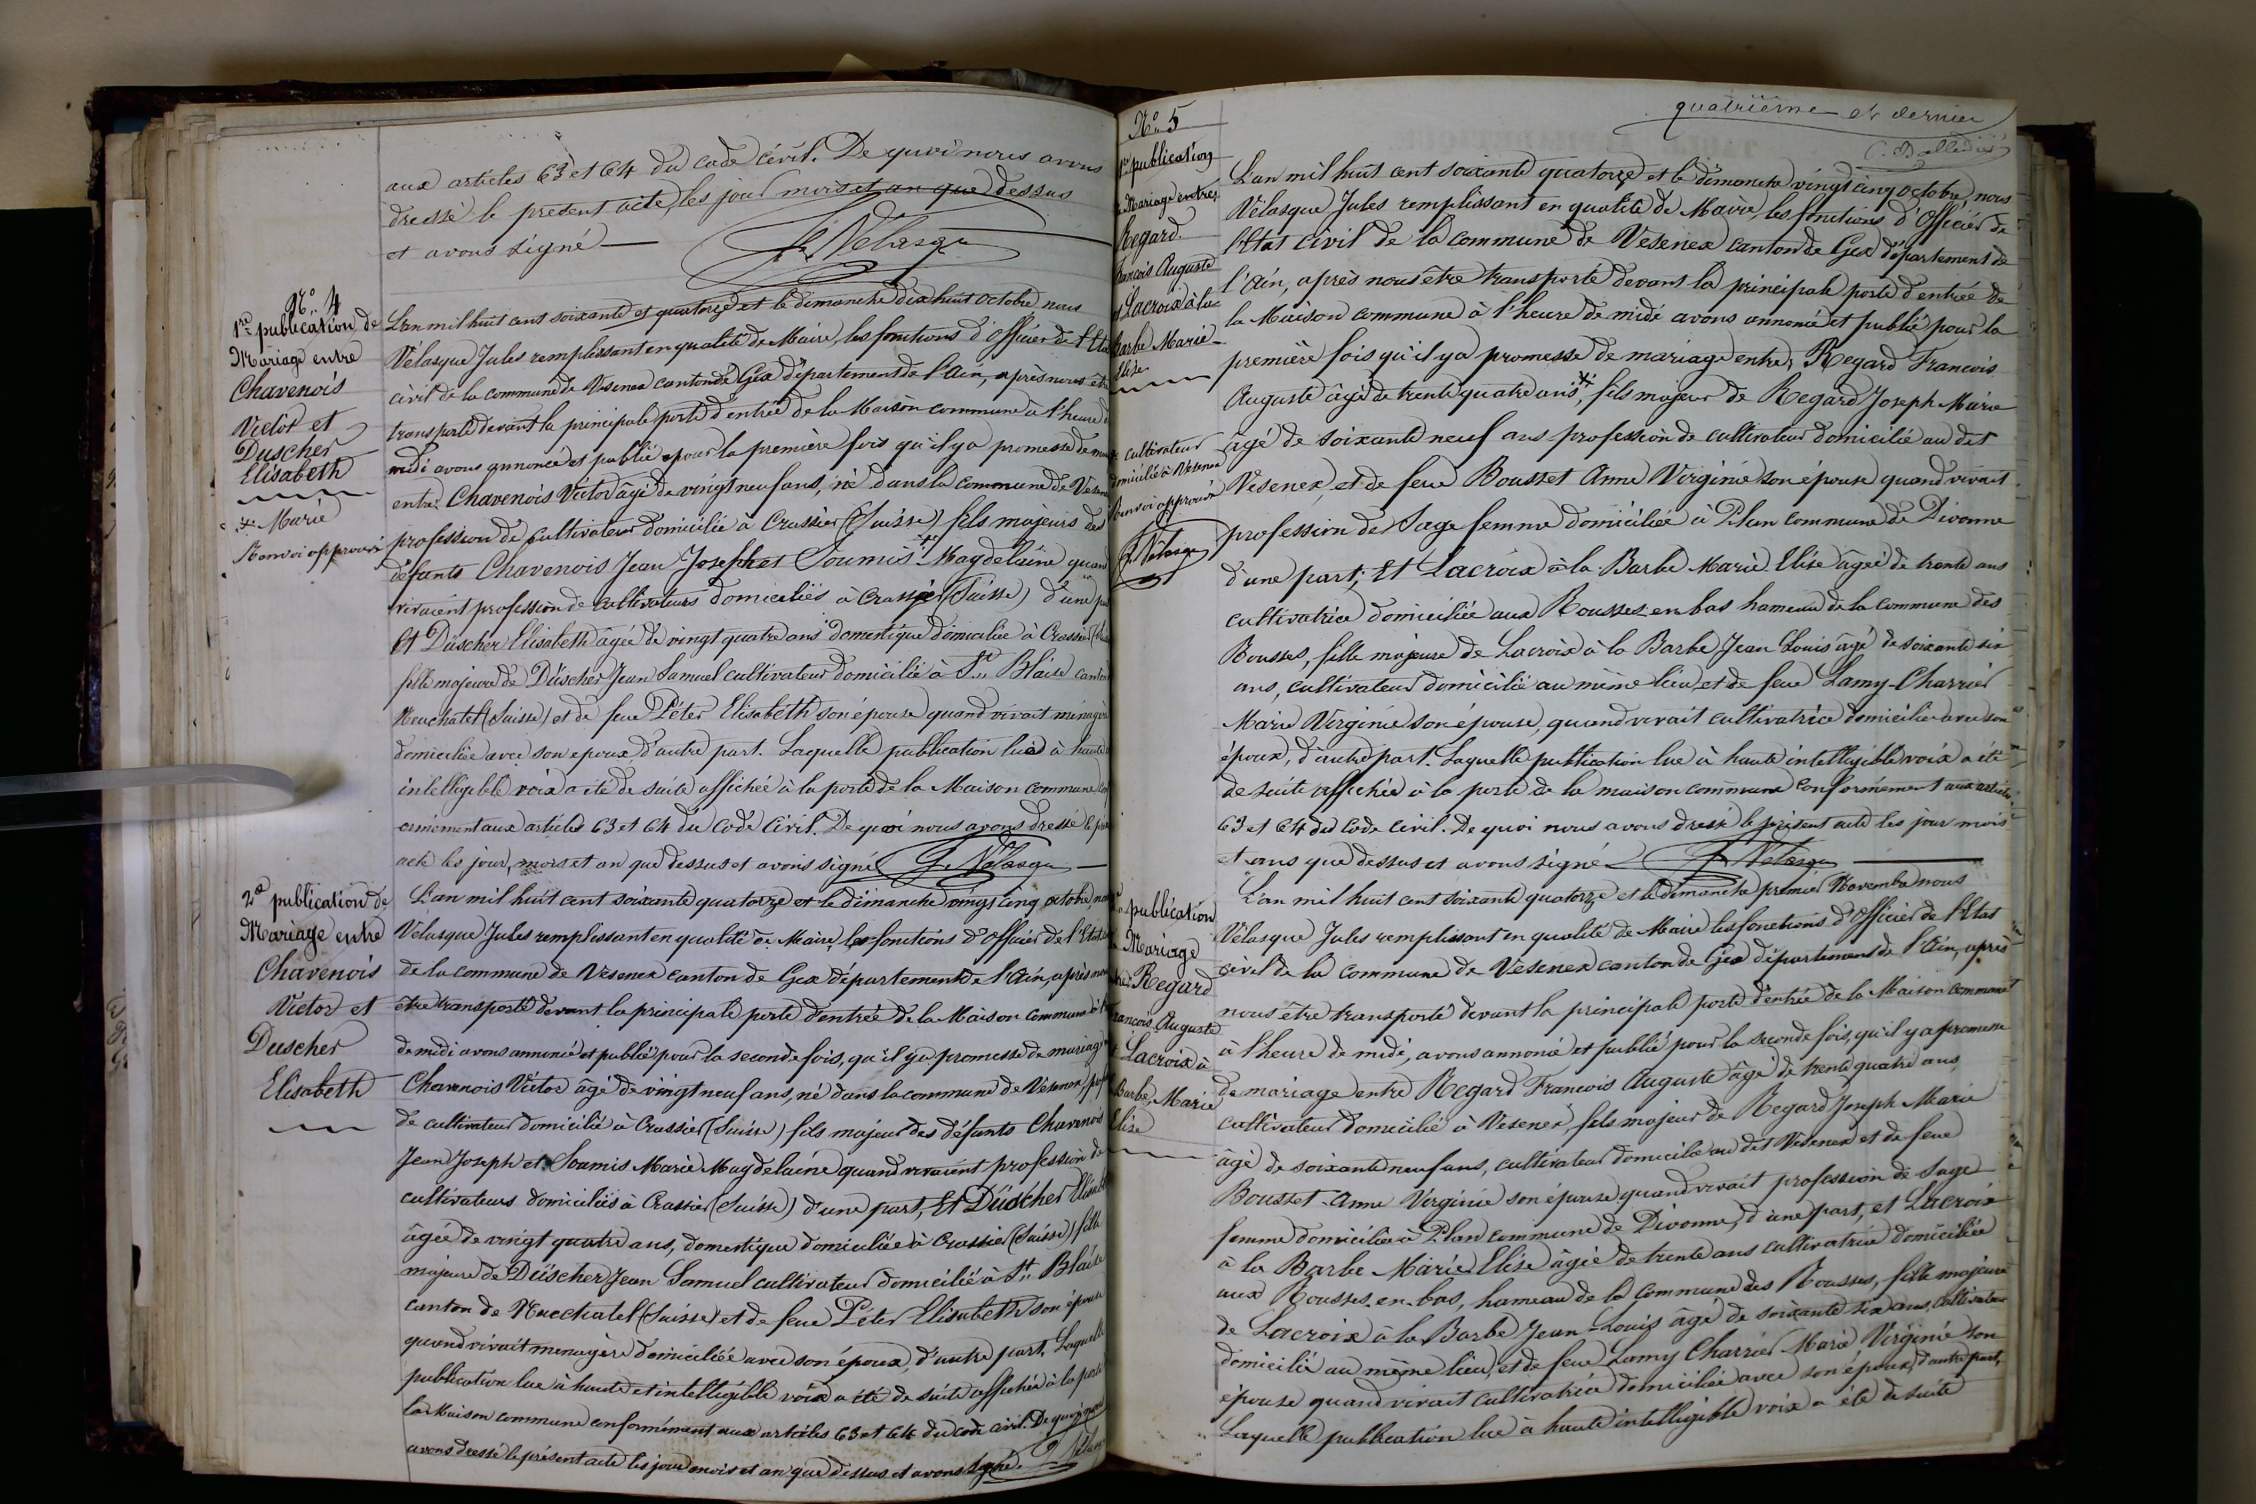 aux articles 63 et 64 du code civil. De quoi nous avons
dressé le présent acte, les jour mois et an que dessus
et avons signé J. Vélasque
No. 4
1re publication de
Mariage entre
Chavenois
Victor et
Duscher
Elisabeth
Marie
Renvoi approuvé
L'an mil huit cent soixante et quatorze et le dimanche dix huit octobre nous
Vélasque Jules remplissant en qualité de Maire, les fonctions d'Officier de l'Eta
civil de la commune de Vesenex canton de Gex département de l'Ain, après nous être
transporté devant la principale porte d'entrée de la Maison commune à l'heure d
midi avons annoncé et publié pour la première fois qu'il y a promesse de ma
entre Chavenois Victor âgé de vingt neuf ans, né dans la commune de Vesen
profession de cultivateur domicilié à Crassier (Suisse) fils majeurs des
défunts Chavenois Jean Joseph et Soumis Magdelaine quand
vivaient profession de cultivateurs domiciliés à Crassier (Suisse) d'une pa
Et Düscher Elisabeth âgée de vingt quatre ans domestique domiciliée à Crassier
fille majeure de Düscher Jean Samuel cultivateur domicilié à St. Blaise canton
Neuchatel (Suisse) et de feue Péter Elisabeth son épouse quand vivait ménagère
domiciliée avec son époux, d'autre part. Laquelle publication lue à haute
intelligible voix a été de suite affichée à la porte de la Maison commune
ormément aux articles 63 et 64 du Code Civil. De quoi nous avons dressé le
acte les jour, mois et an que dessus et avons signé J. Vélasque
2e publication de
Mariage entre
Chavenois
Victor et
Duscher
Elisabeth
L'an mil huit cent soixante quatorze et le dimanche vingt cinq octobre, no
Vélasque Jules remplissant en qualité de Maire, les fonctions d'Officier de l'Etat
de la commune de Vesenex canton de Gex département de l'Ain, après nous
être transporté devant la principale porte d'entrée de la Maison commune
de midi avons annoncé et publié pour la seconde fois, qu'il y a promesse de mariage
Chavenois Victor âgé de vingt neuf ans, né dans la commune de Vesenex, prof
de cultivateur domicilié à Crassier (Suisse) fils majeur des défunts Chavenois
Jean Joseph et Soumis Marie Magdelaine quand vivaient profession de
cultivateurs domiciliés à Crassier (Suisse) d'une part, Et Düscher Elisabe
âgée de vingt quatre ans, domestique domiciliée à Crassier (Suisse) fille
majeure de Düscher Jean Samuel cultivateur domicilié à St. Blaise
canton de Neuchatel (Suisse) et de feue Péter Elisabeth son épouse
quand vivait ménagère domiciliée avec son époux, d'autre part. Laquelle
publication lue à haute et intelligible voix a été de suite affichée à la porte
la Maison commune conformément aux articles 63 et 64 du code civil. De quoi nous
avons dressé le présent acte les jour mois et an que dessus et avons signé.
quatrième et dernier
No. 5
1re publication
de Mariage entre
Regard
François Auguste
et Lacroix à la
Barbe Marie
Elise
cultivateur
domicilié à Vesenex
Renvoi approuvé
J. Vélasque
L'an mil huit cent soixante quatorze et le dimanche vingt cinq octobre, nous
Vélasque Jules remplissant en qualité de Maire, les fonctions d'Officier de
l'Etat civil de la commune de Vesenex canton de Gex département de
l'Ain, après nous être transporté devant la principale porte d'entrée de
la Maison commune à l'heure de midi avons annoncé et publié pour la
première fois qu'il y a promesse de mariage entre, Regard François
Auguste âgé de trente quatre ans, fils majeur de Regard Joseph Marie
âgé de soixante neuf ans profession de cultivateur domicilié au dit
Vesenex, et de feue Bousset Anne Virginie son épouse quand vivait
profession de Sage femme domiciliée à Plan commune de Divonne
d'une part; Et Lacroix à la Barbe Marie Elise âgée de trente ans
cultivatrice domiciliée aux Rousses en bas hameau de la commune des
Rousses, fille majeure de Lacroix à la Barbe Jean Louis âgé de soixante six
ans, cultivateur domicilié au même lieu, et de feue Lamy-Charrier
Marie Virginie son épouse, quand vivait cultivatrice domiciliée avec son
époux, d'autre part. Laquelle publication lue à haute intelligible voix a été
de suite affichée à la porte de la maison commune conformément aux articles
63 et 64 du Code civil. De quoi nous avons dressé le présent acte les jour mois
et ans que dessus et avons signé J. Vélasque
publication
Mariage
Regard
François Auguste
Lacroix à
Barbe Marie
Elise
L'an mil huit cent soixante quatorze et le dimanche premier Novembre nous
Vélasque Jules remplissant en qualité de Maire les fonctions d'Officier de l'Etat
civil de la commune de Vesenex canton de Gex département de l'Ain, après
nous être transporté devant la principale porte d'entrée de la Maison commune
à l'heure de midi, avons annoncé et publié pour la seconde fois, qu'il y a promesse
de mariage entre Regard François Auguste âgé de trente quatre ans,
cultivateur domicilié à Vesenex, fils majeur de Regard Joseph Marie
âgé de soixante neuf ans, cultivateur domicilié au dit Vesenex et de feue
Bousset Anne Virginie son épouse quand vivait profession de Sage
femme domiciliée à Plan commune de Divonne, d'une part, et Lacroix
à la Barbe Marie Elise âgée de trente ans cultivatrice domiciliée
aux Rousses en bas, hameau de la commune des Rousses, fille majeure
de Lacroix à la Barbe Jean-Louis âgé de soixante six ans, cultivateur
domicilié au même lieu, et de feue Lamy Charrier Marie Virginie son
épouse quand vivait cultivatrice domiciliée avec son époux, d'autre part,
Laquelle publication lue à haute intelligible voix a été de suite